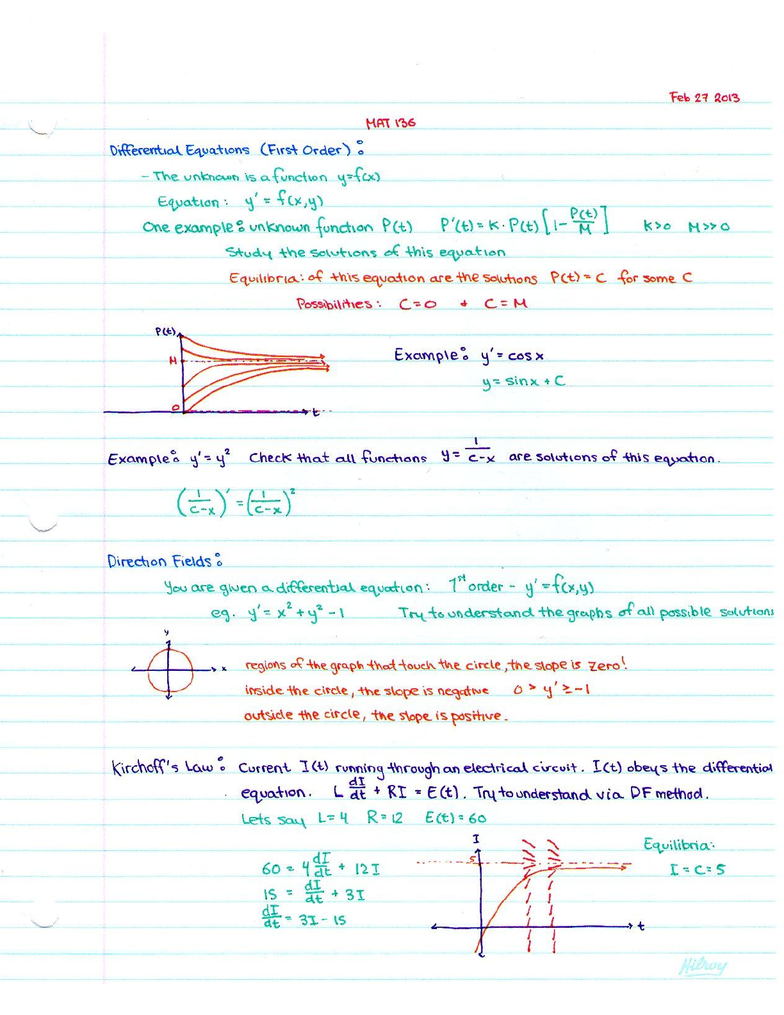 Feb 27 2013
MAT 136
Differential Equations (First Order):
- The unknown is a function y=f(x)
Equation: y' = f(x,y)
One example: unknown function P(t) P'(t) = K · P(t) [1 - P(t)/M] K>0 M>>0
Study the solutions of this equation
Equilibria: of this equation are the solutions P(t) = C for some C
Possibilities: C=0 + C=M
P(t)
M
0
t
Example: y' = cosx
y = sinx + C
Example: y' = y² Check that all functions y = 1/(C-x) are solutions of this equation.
(1/(C-x))' = (1/(C-x))²
Direction Fields:
You are given a differential equation: 1st order - y' = f(x,y)
eg. y' = x² + y² - 1 Try to understand the graphs of all possible solutions
y
x
regions of the graph that touch the circle, the slope is zero!
inside the circle, the slope is negative 0 > y' ≥ -1
outside the circle, the slope is positive.
Kirchoff's Law: Current I(t) running through an electrical circuit. I(t) obeys the differential
equation. L dI/dt + RI = E(t). Try to understand via DF method.
Lets say L=4 R=12 E(t)=60
60 = 4 dI/dt + 12I
15 = dI/dt + 3I
dI/dt = 3I - 15
I
5
t
Equilibria:
I = C = 5
Hilroy